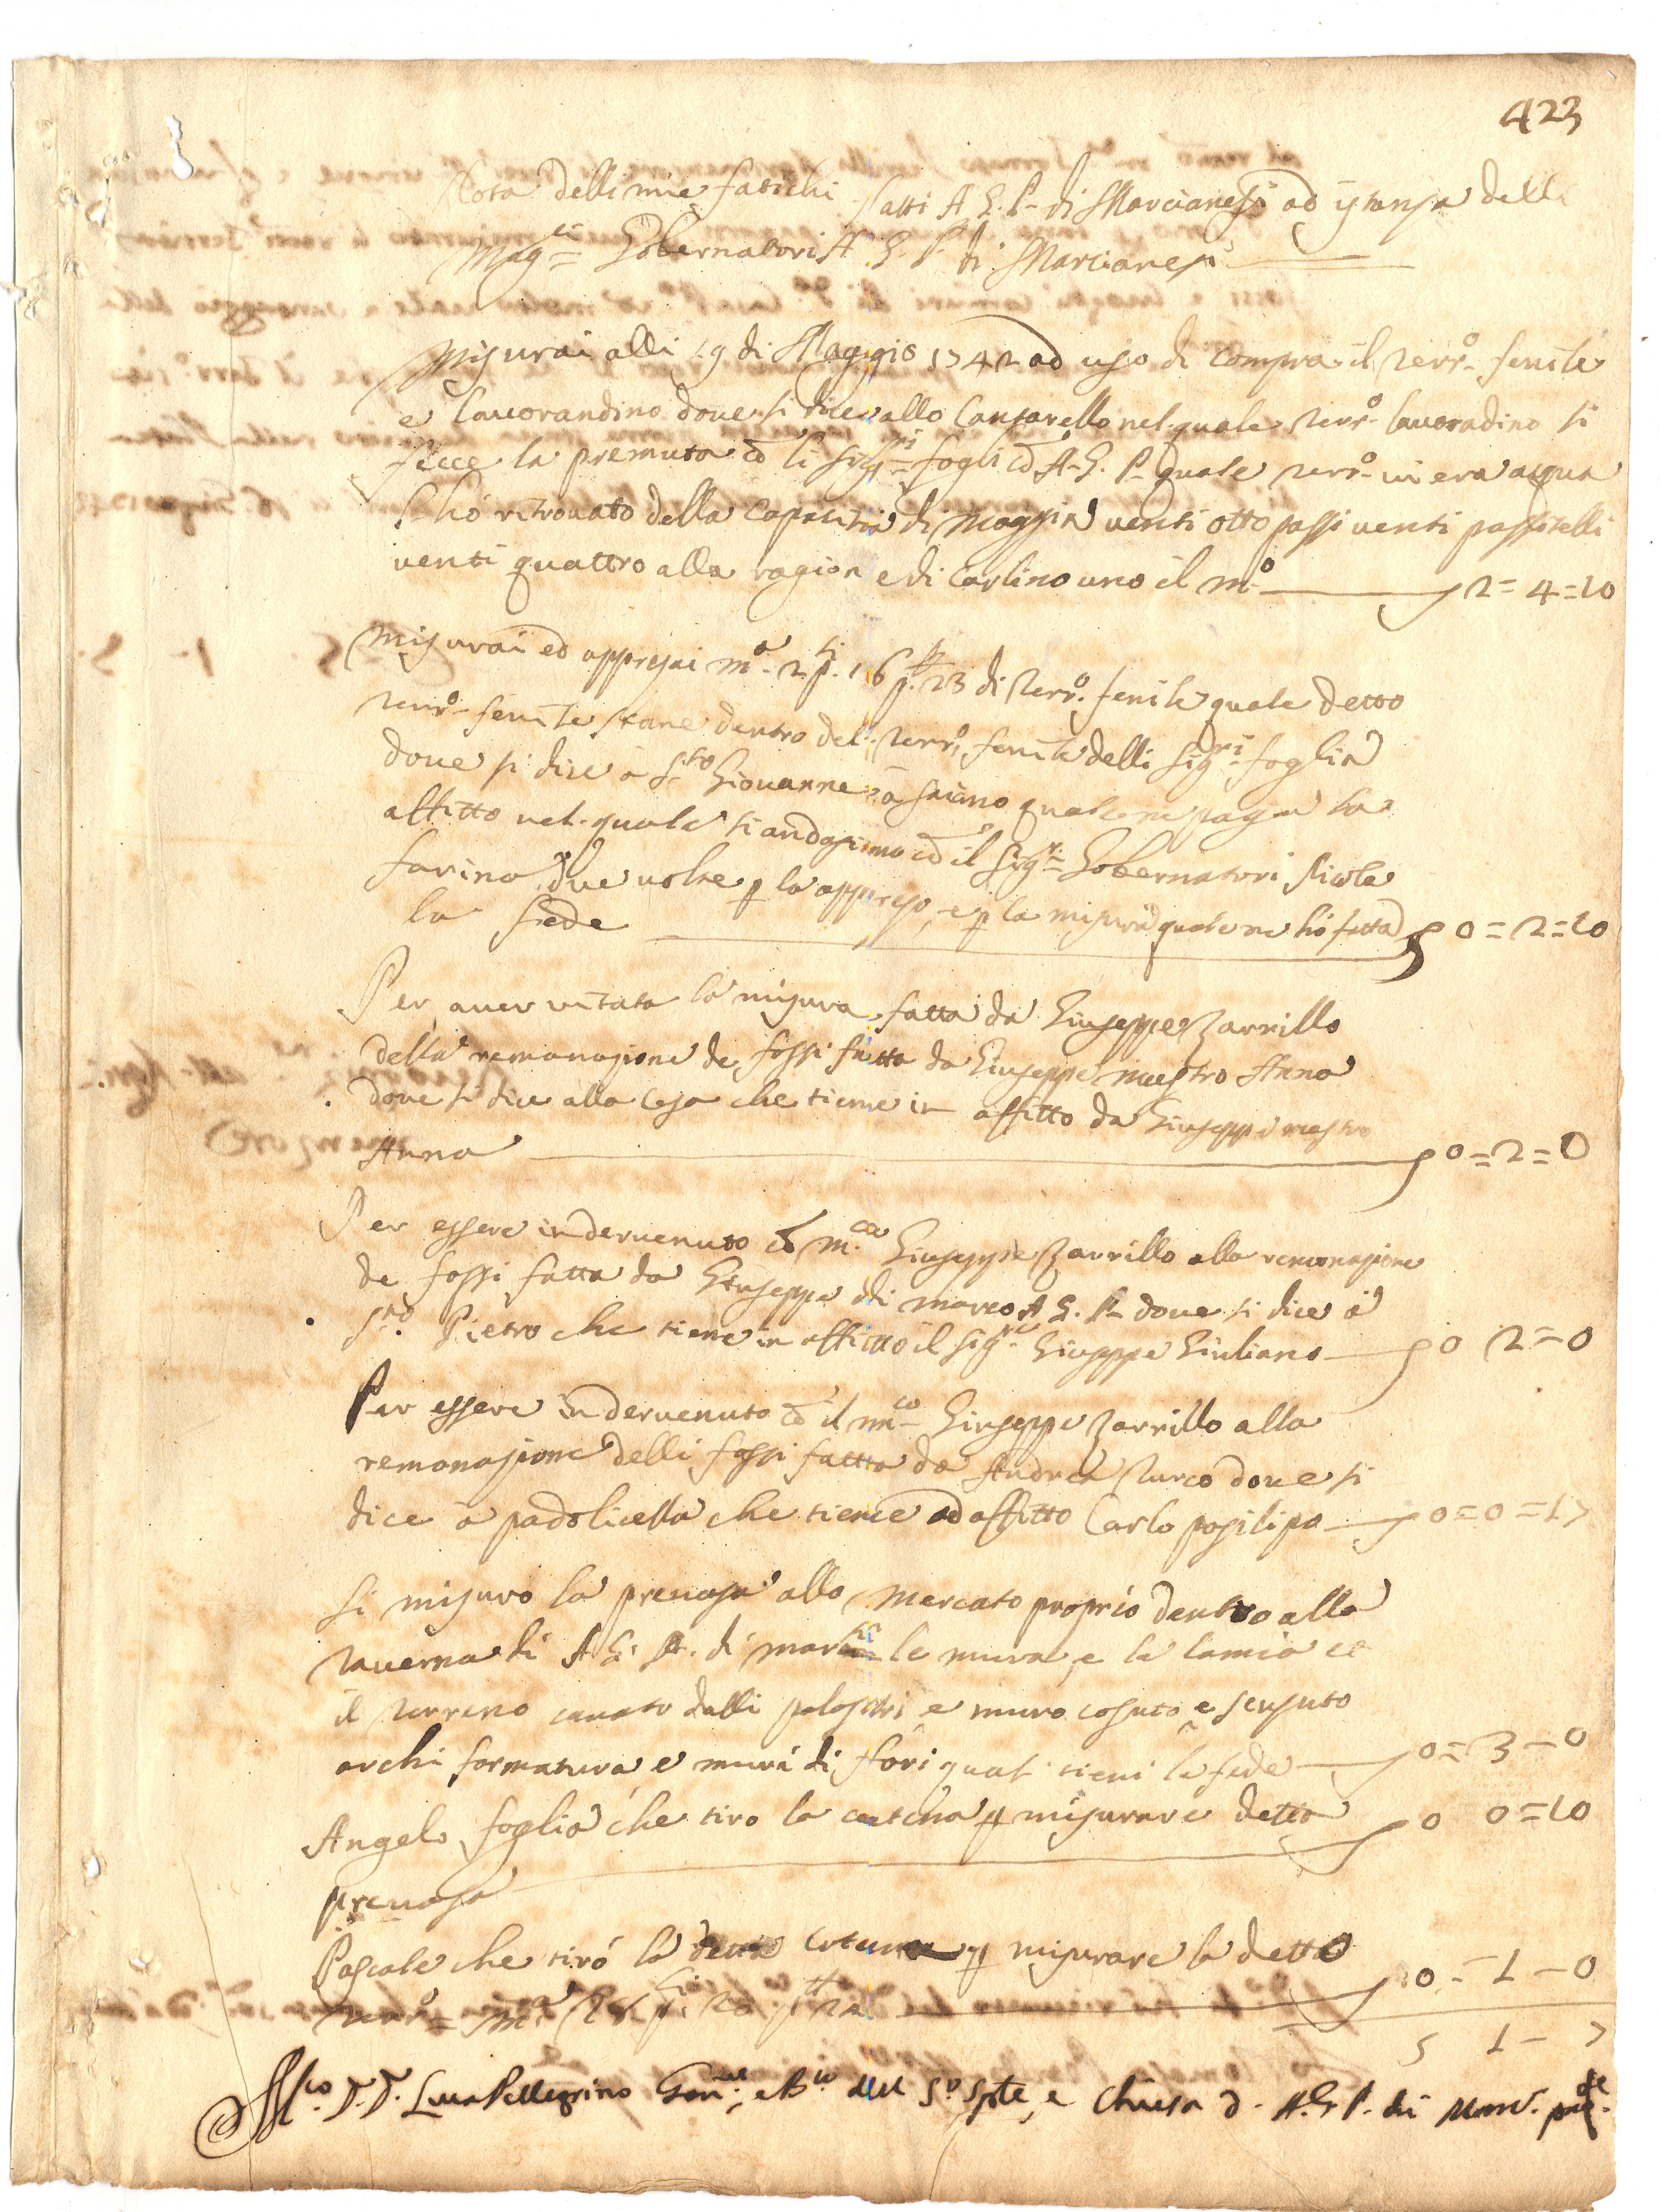 423
Nota delli mie fatichi fatti A. G. P. di Marcianesi ad istansa delli
Mag.ci Gobernatori A. G. P. di Marcianesi
Misurai alli 19 di Maggio 1742 ad uso di compra il terr.o fenile
e lauorandino doue si dice allo Cantarello nel quale terr.o lauoradino si
fecce la premuta cō li Sig.ri foglia cō A. G. P. quale terr.o ui era acqua
l'hó ritrouato della Capacità di moggia uenti otto passi uenti passitelli
uenti quattro alla ragione di Carlino uno il m.o 2=4=10
Misurai ed appresai m.a 2 p.si 16 p.tt 23 di terr.o fenile quale detto
terr.o fenile stane dentro del terr.o fenile delli Sig.ri foglia
doue si dice à S.to Giouanne à quale ne paga la
affitto nel quale si andassimo cō il Sig.ri Gobernatori Nicola
farina due uolte p lo appreso, e p la misura quale ne hó fatta
la fede 0=2=10
Per auer uitata la misura fatta da Giuseppe Zarrillo
della remonasione de fossi fatta da Giuseppe mastro Anna
doue si dice alla Casa che tiene in affitto da Giuseppe mastro
Anna 0=2=0
Per essere indervenuto cō m.co Giuseppe Zarrillo alla remonasione
de fossi fatta da Giuseppe di marco A. G. P. doue si dice à
S.to Pietro che tiene in affitto il Sig.re Giuseppe Giuliano 0 2=0
Per essere indervenuto cō il m.co Giuseppe Zarrillo alla
remonasione delli fossi fatta da Andrea Turco doue si
dice à padolicella che tiene ad affitto Carlo posilipo 0=0=17
Si misuro la presa allo mercato proprio dentro alla
tauerna di A. G. P. di mar le mura e la lamia et
il terreno cauato dalli pelastri e muro cosuto e scusuto
archi formatura e mura di fori quale tieni la fede 0=3=0
Angelo foglia che tiro la catena p misurare detta 0 0=10
Pascale che tiró la detta catena p misurare la detta
terr.o m.a 28 p.si 20 p.tt 24 0=1=0
5 1 - 7
D. D. Luca Pellegrino Gou.re del S.o Sple, e Chiesa d. A. G. P. di Marc.